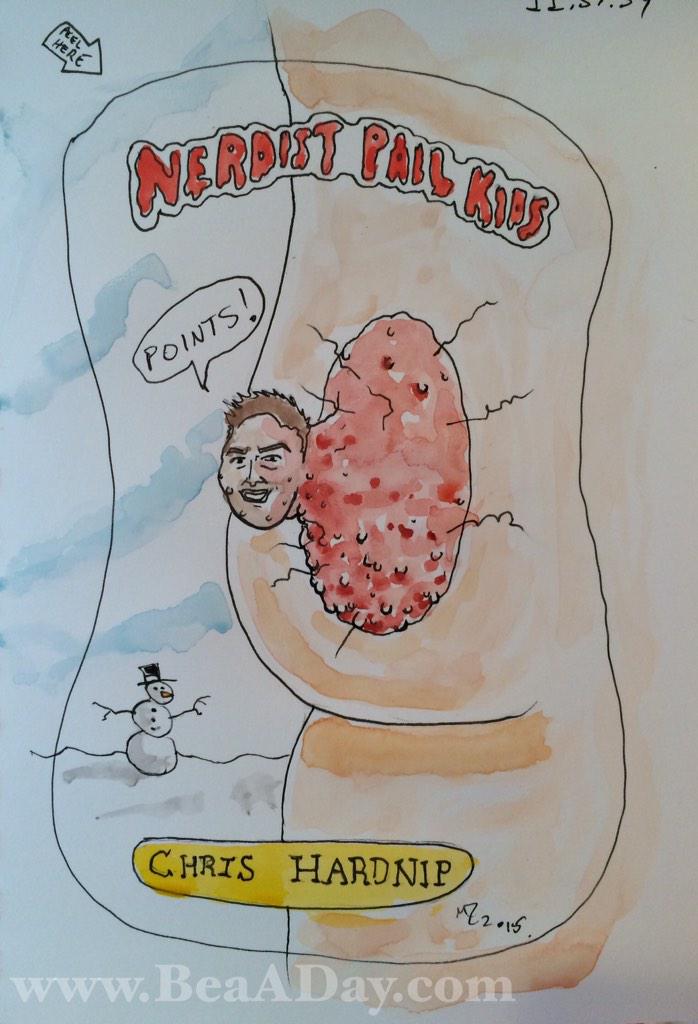 PEEL
HERE
NERDIST PAIL KIDS
POINTS!
CHRIS HARDNIP
MZ 2015.
www.BeaADay.com